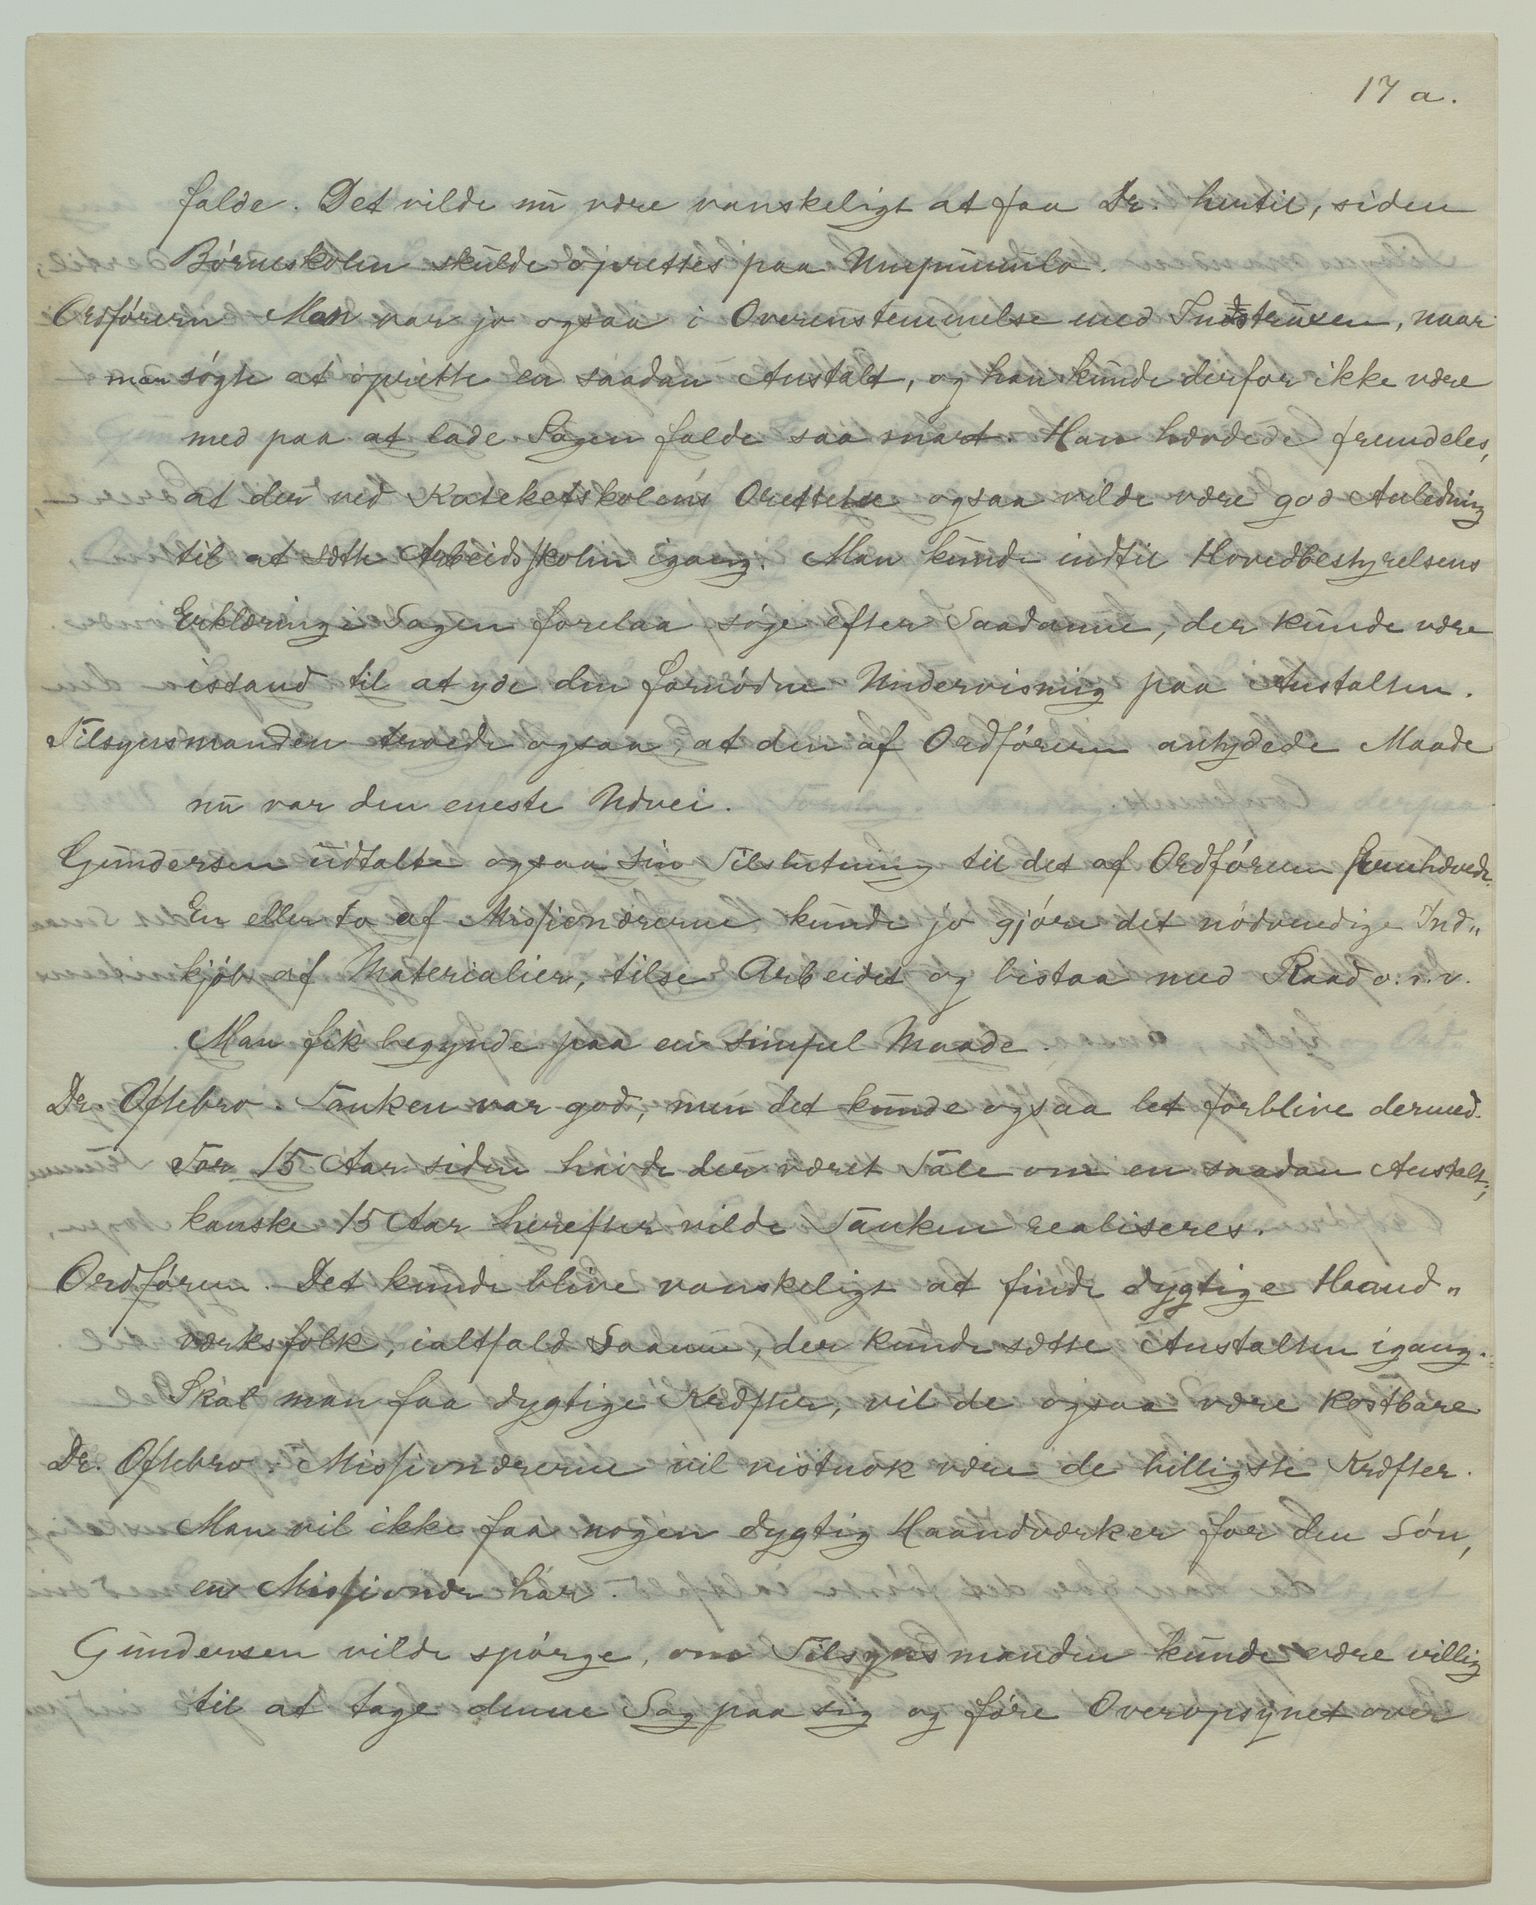 17 a.
falde. Det vilde nu være vanskeligt at faa Dr. hertil, siden
Börneskolen skulde oprettes paa Umpumulo.
Ordförern Man var jo ogsaa i Overensstemmelse med Instruxen, naar
man sögte at oprette en saadan Anstalt, og han kunde derfor ikke være
med paa at lade Sagen falde saa snart. Han hævdede fremdeles,
at der ved Kateketskolens Orettelse ogsaa vilde være god Anledning
til at sætte Arbeidsskolen igang. Man kunde indtil Hovedbestyrelsens
Erklæring i Sagen forelaa söge efter Saadanne, der kunde være
istand til at yde den fornödne Undervisning paa Anstalten.
Tilsynsmanden troede ogsaa, at den af Ordförern antydede Maade
nu var den eneste Udvei.
Gundersen udtalte ogsaa sin Tilslutning til det af Ordförern fremhævede.
En eller to af Missionærerne kunde jo gjöre det nödvendige Ind„
kjöb af Materialier, tilse Arbeidet og bistaa med Raad o.s.v.
Man fik begynde paa en simpel Maade.
Dr. Oftebro. Tanken var god, men det kunde ogsaa let forblive dermed.
For 15 Aar siden havde der været Tale om en saadan Anstalt;
kanske 15 Aar herefter vilde Tanken realiseres.
Ordförern. Det kunde blive vanskeligt at finde dygtige Haand„
værksfolk, ialtfald Saanne, der kunde sætte Anstalten igang.
Skal man faa dygtige Kræfter, vil de ogsaa være kostbare
Dr. Oftebro. Missionærerne vil vistnok være de billigste Kræfter.
Man vil ikke faa nogen dygtig Haandværker for den Lön,
en Missionær har.
Gundersen vilde spörge, om Tilsynsmanden kunde være villig
til at tage denne Sag paa sig og före Overopsynet over